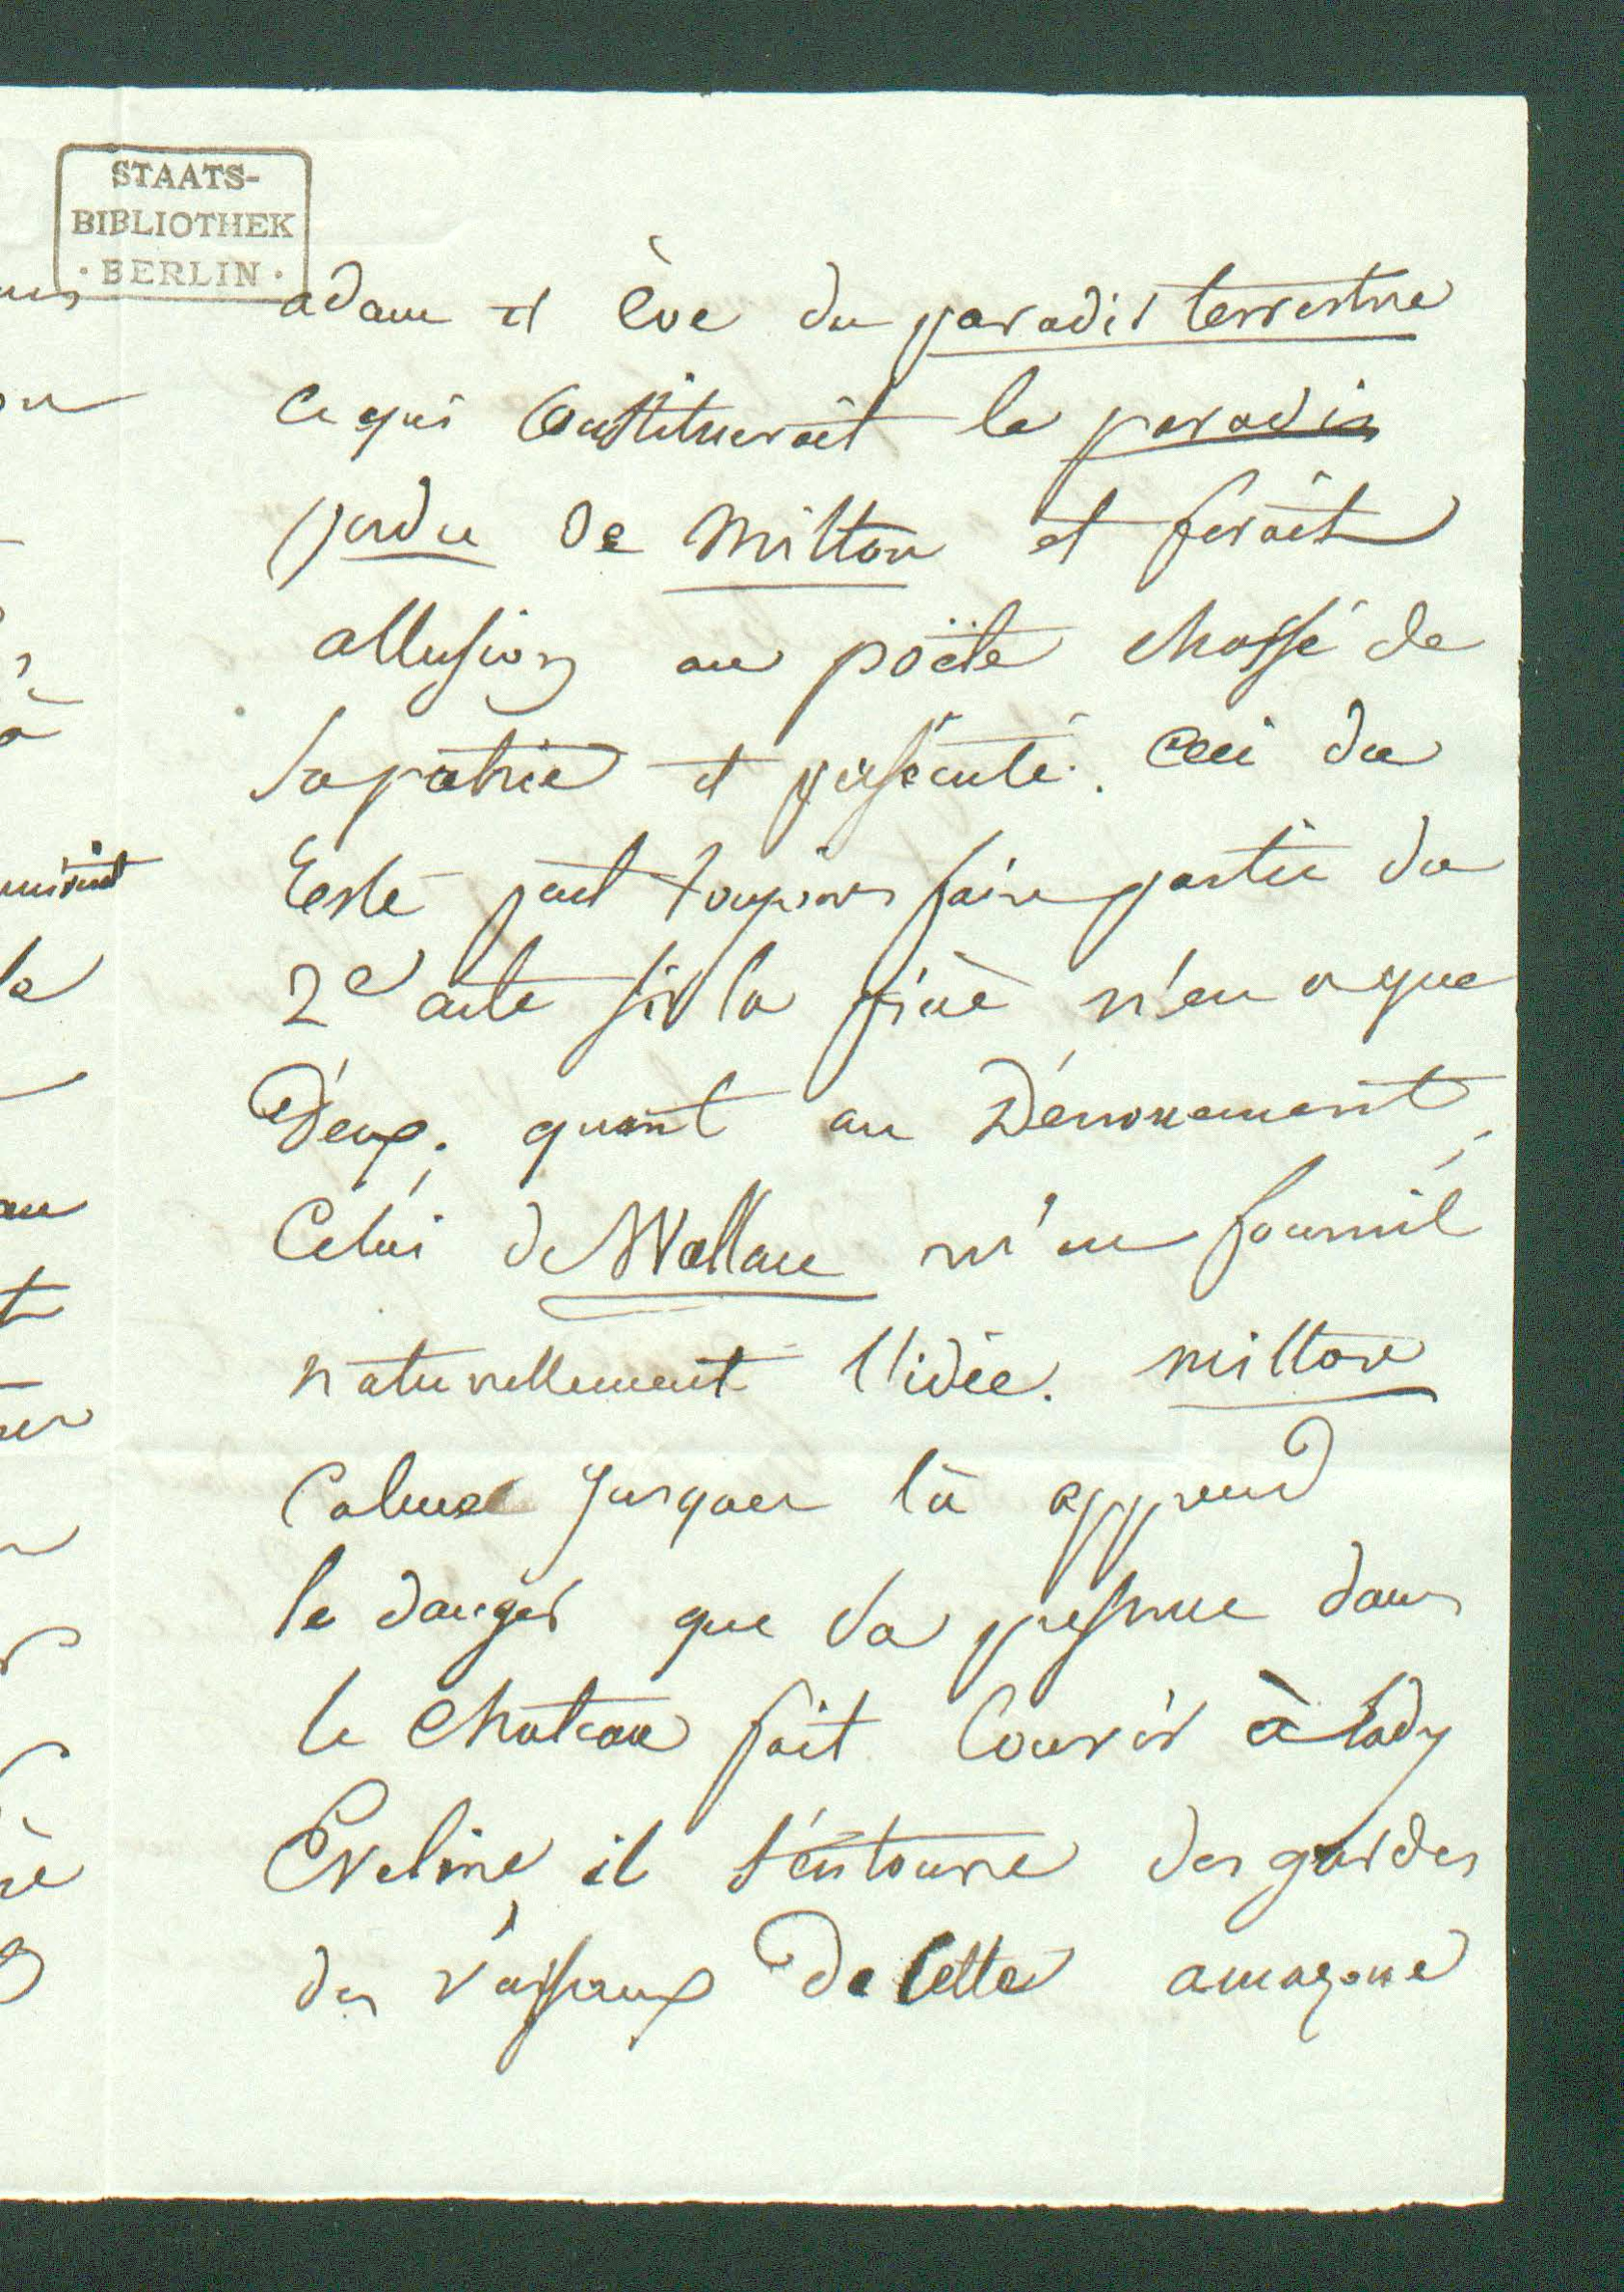 STAATS-
BIBLIOTHEK
· BERLIN ·
adam et ève du paradis terrestre
ce qui constitueroit le paradis
perdu de Milton et feroit
allusion au poëte chassé de
sa patrie et persécuté. Ceci du
reste peut toujours faire partie du
2e acte si la pièce n'en a que
Deux; quant au Dénouement,
Celui de Wallace m'en fournit
naturellement l'idée. milton
Calme jusques là apprend
le danger que sa présence dans
le chateau fait courir à lady
Eveline il s'entoure des gardes
des vassaux de cette amazone